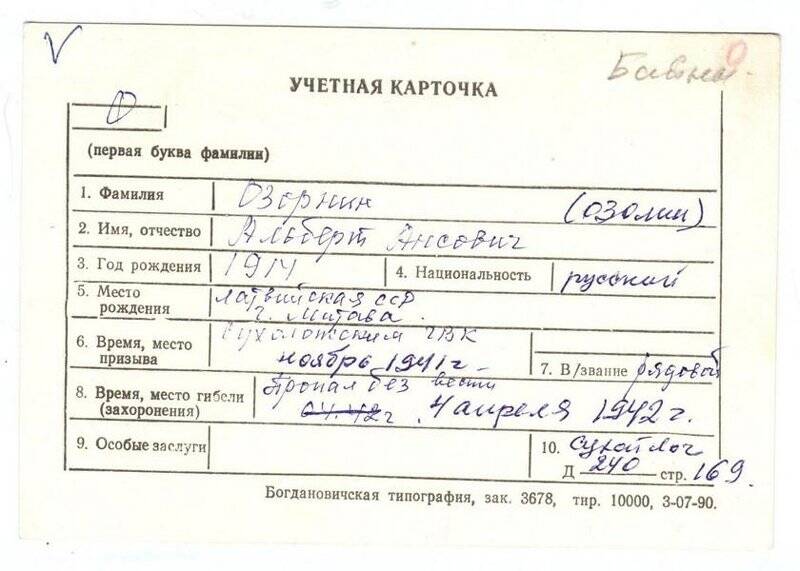 V
УЧЕТНАЯ КАРТОЧКА
О
(первая буква фамилии)
1. Фамилия Озорнин (Озолин)
2. Имя, отчество Альберт Ансович
3. Год рождения 1914 4. Национальность русский
5. Место рождения Латвийская ССР г. Митава.
6. Время, место призыва Сухоложским ГВК ноябрь 1941 г. 7. В/звание рядовой
8. Время, место гибели (захоронения) Пропал без вести 04.42 г. 4 апреля 1942 г.
9. Особые заслуги 10. Сухой Лог
Д 240 стр. 169.
Богдановичская типография, зак. 3678, тир. 10000, 3-07-90.